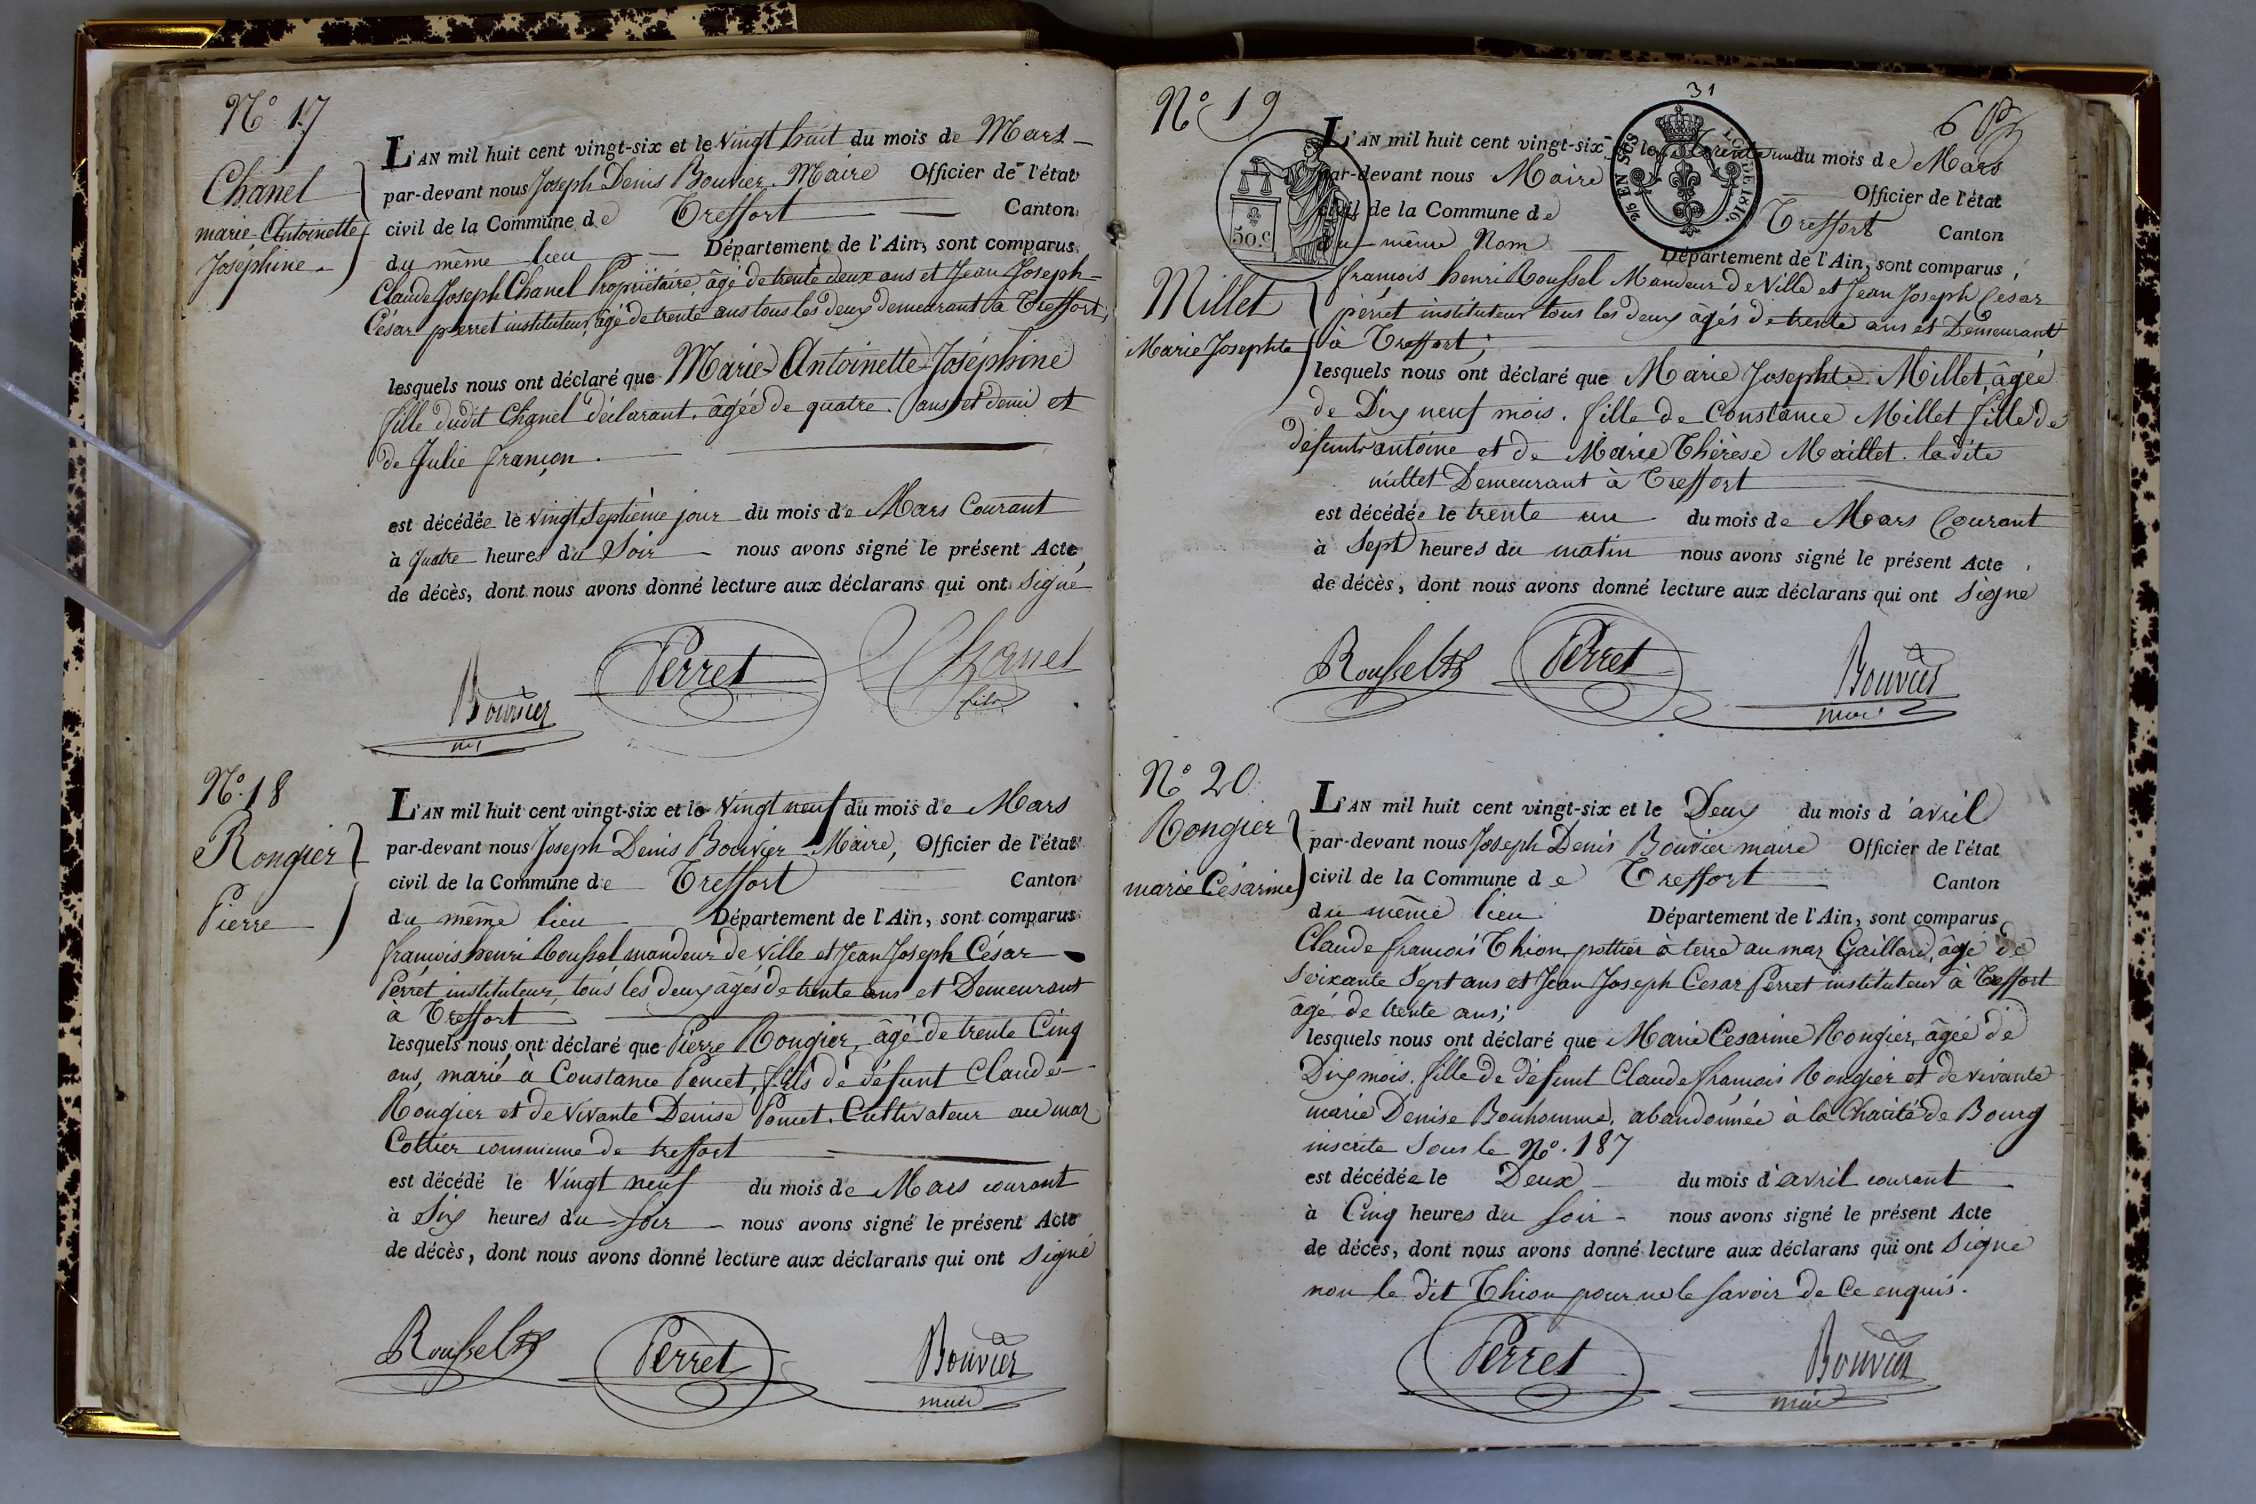 N.o 17
Chanel
marie Antoinette
Joséphine
L'AN mil huit cent vingt-six et le vingt huit du mois de Mars
par-devant nous Joseph Denis Bouvier Maire Officier de l'état
civil de la Commune de Treffort Canton
du même lieu Département de l'Ain, sont comparus
Claude Joseph Chanel Propriétaire âgé de trente deux ans et Jean Joseph
César perret instituteur, âgé de trente ans tous les deux demeurant à Treffort,
lesquels nous ont déclaré que Marie Antoinette Joséphine
fille dudit Chanel déclarant. âgée de quatre ans et demi et
de Julie françon.
est décédée le vingt Septième jour du mois de Mars Courant
à quatre heures du Soir nous avons signé le présent Acte
de décès, dont nous avons donné lecture aux déclarans qui ont signé
Bouvier Perret Chanel
fils
N.o 18
Rongier
Pierre
L'AN mil huit cent vingt-six et le Vingt neuf du mois de Mars
par-devant nous Joseph Denis Bouvier Maire, Officier de l'état
civil de la Commune de Treffort Canton
du même lieu Département de l'Ain, sont comparus
françois henri Roussel mandeur de ville et Jean Joseph César
Perret instituteur, tous les deux âgés de trente ans et Demeurant
à Treffort
lesquels nous ont déclaré que Pierre Rongier, âgé de trente Cinq
ans, marié à Constance Poncet, fils de défunt Claude
Rongier et de vivante Denise Poncet. Cultivateur au maz
Cottier commune de treffort
est décédé le Vingt neuf du mois de Mars courant
à Six heures du soir nous avons signé le présent Acte
de décès, dont nous avons donné lecture aux déclarans qui ont signé
Roussel Perret Bouvier
maire
31
N.o 19
Millet
Marie Josephte
L'AN mil huit cent vingt-six et le trente un du mois de Mars
par-devant nous Maire Officier de l'état
civil de la Commune de Treffort Canton
du même Nom Département de l'Ain, sont comparus,
50.C
EN SUS
LOI DE 1816.
françois henri Roussel Mandeur de Ville et Jean Joseph César
perret instituteur tous les deux âgés de trente ans et Demeurant
à Treffort;
lesquels nous ont déclaré que Marie Josephte Millet, âgée
de Dix neuf mois. fille de Constance Millet fille de
défunt antoine et de Marie Thérèse Maillet. ladite
millet Demeurant à Treffort
est décédée le trente un du mois de Mars Courant
à Sept heures du matin nous avons signé le présent Acte
de décès, dont nous avons donné lecture aux déclarans qui ont Signé
Roussel Perret Bouvier
maire
N.o 20
Rongier
marie Césarine
L'AN mil huit cent vingt-six et le Deux du mois d'avril
par-devant nous Joseph Denis Bouvier maire Officier de l'état
civil de la Commune de Treffort Canton
du même lieu Département de l'Ain, sont comparus
Claude françois Thion pottier à terre au maz Gaillard, âgé de
soixante Sept ans et Jean Joseph Cesar Perret instituteur à Treffort
âgé de trente ans;
lesquels nous ont déclaré que Marie Cesarine Rongier, âgée de
Dix mois. fille de défunt Claude françois Rongier et de vivante
marie Denise Bonhomme. abandonnée à la Charité de Bourg
inscrite sous le N.o 187
est décédée le Deux du mois d'avril courant
à Cinq heures du soir nous avons signé le présent Acte
de décès, dont nous avons donné lecture aux déclarans qui ont Signé
non le dit Thion pour ne le savoir de Ce enquis.
Perret Bouvier
maire